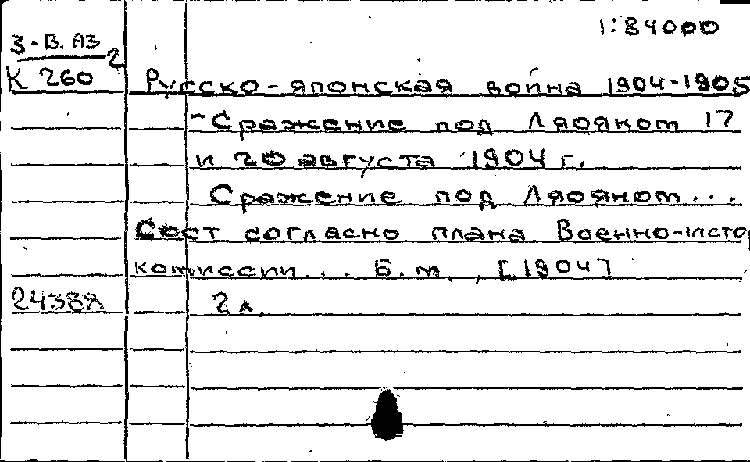 1:84000
3-В. АЗ
2
К 260 Русско-японская война 1904-1905
-Сражение под Ляояном 17
и 20 августа 1904 г.
Сражение под Ляояном...
Сост согласно плана Военно-истор
комиссии... Б.м., [1904]
24388 2 л.